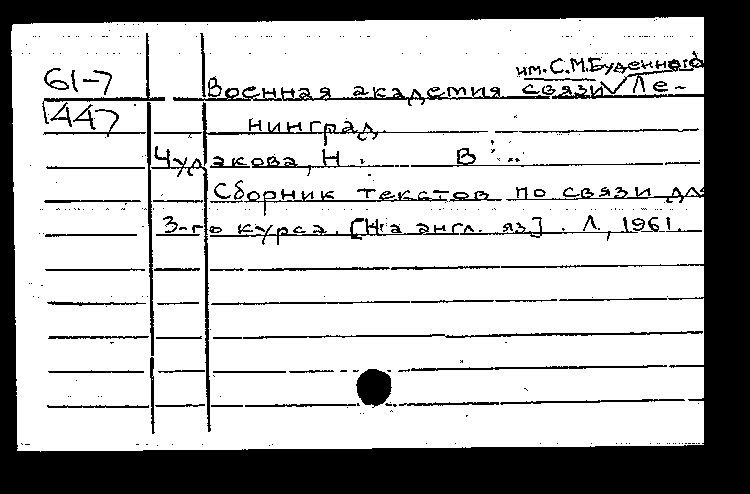 им. С.М.Буденного
61-7 Военная академия связи Ле-
1447 нинград.
Чудакова, Н. В.
Сборник текстов по связи для
3-го курса. [На англ. яз]. Л., 1961.